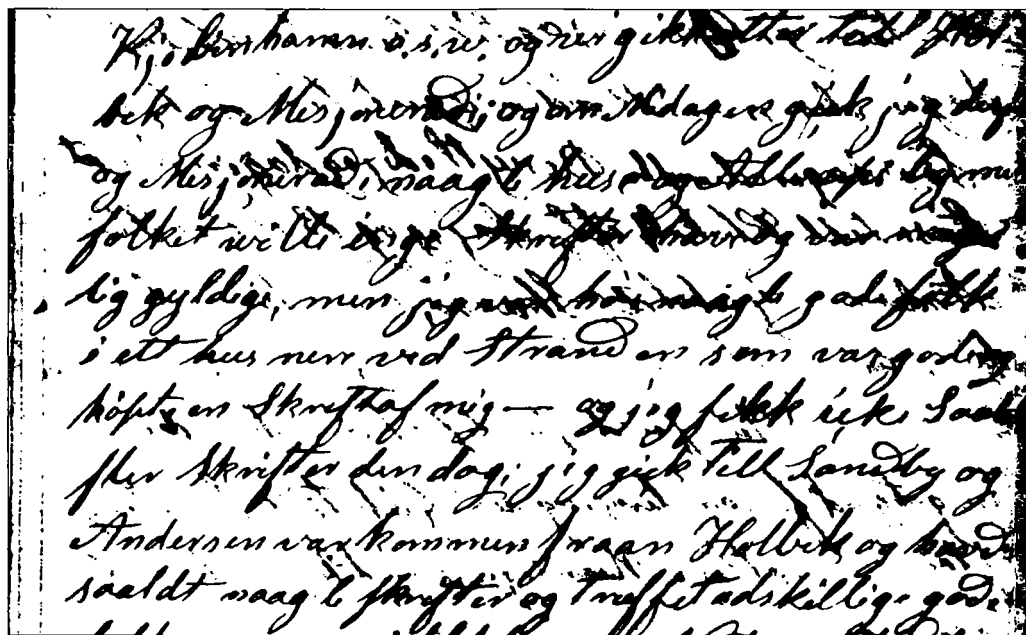 Kjöbenhavn o.s.w. og vi gikk etter till Hol-
bek og Misjonerad; og om Midagen gik jeg
og Misjonerad; naagle hus og
folket wille inge Skrifter have og var
lig gyldige, men jeg var hos naagle gode folk
i ett hus nere ved Stranden som var gode og
köpte en Skrift af mig — og jeg fikk icke Saalt
fler Skrifter den dag; jeg gick Till Sandby og
Andersen var kommen fraan Holbek og havde
saaldt naagle skrifter og treffet adskillige gode